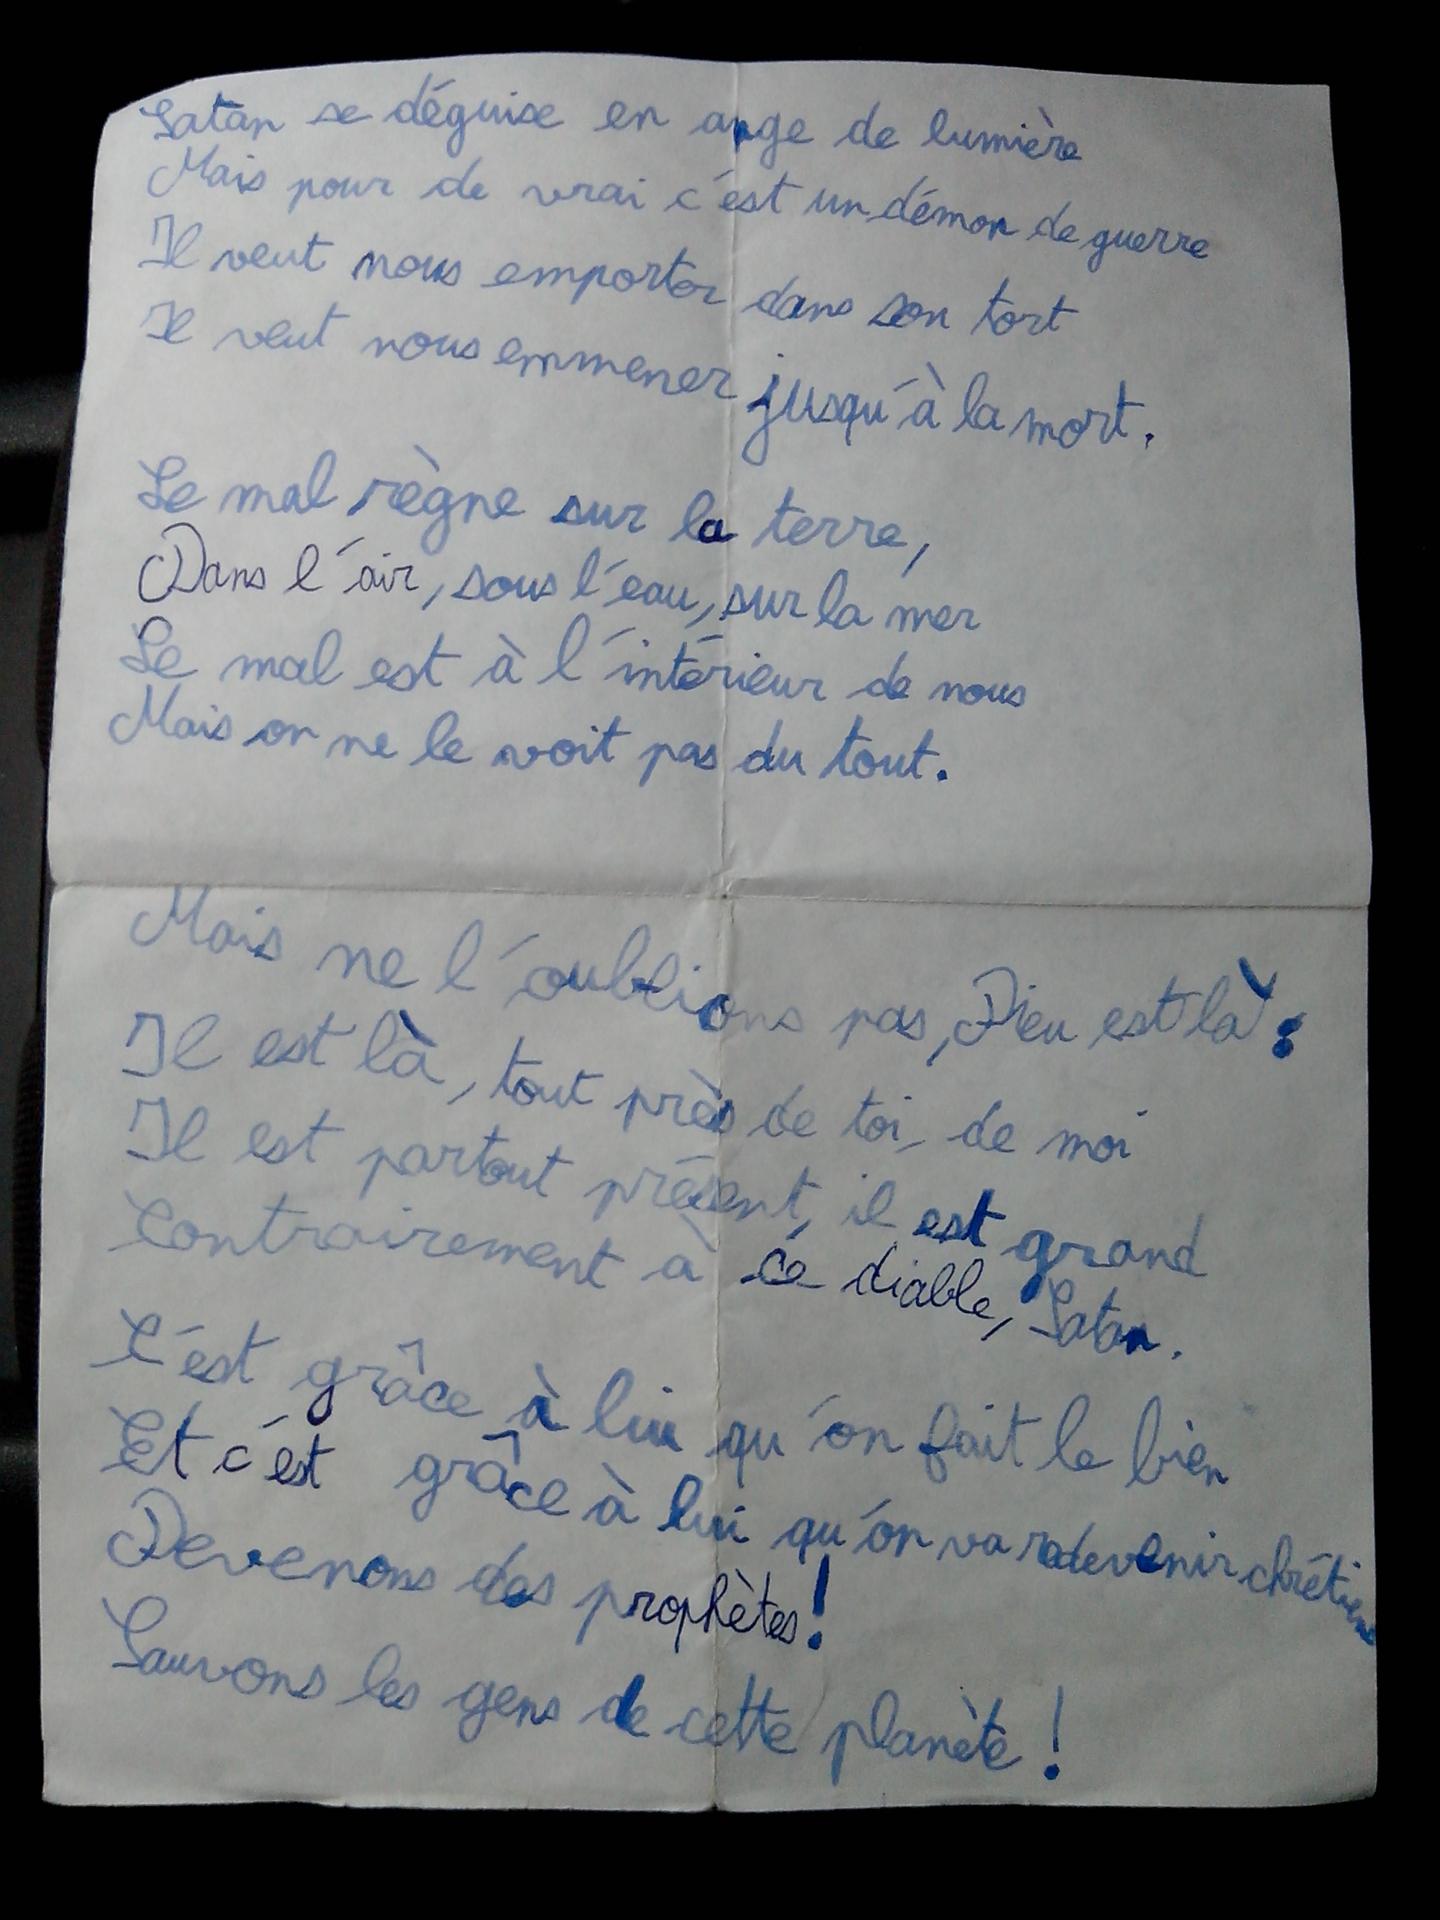 Satan se déguise en ange de lumière
Mais pour de vrai c'est un démon de guerre
Il veut nous emporter dans son tort
Il veut nous emmener jusqu'à la mort.
Le mal règne sur la terre,
Dans l'air, sous l'eau, sur la mer
Le mal est à l'intérieur de nous
Mais on ne le voit pas du tout.
Mais ne l'oublions pas, Dieu est là :
Il est là, tout près de toi, de moi
Il est partout présent, il est grand
Contrairement à ce diable, Satan.
C'est grâce à lui qu'on fait le bien
Et c'est grâce à lui qu'on va redevenir chrétiens
Devenons des prophètes!
Sauvons les gens de cette planète !